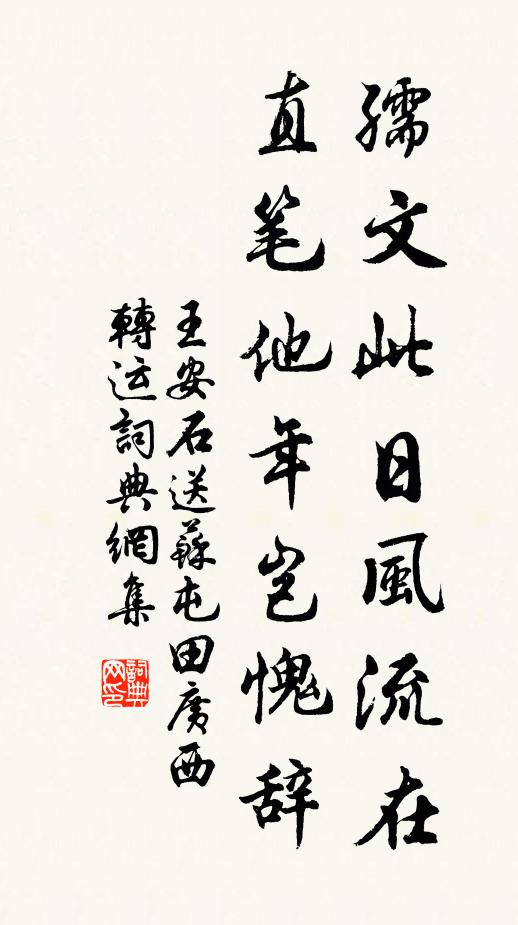 孺文此日風流在
直笔他年岂愧辞
王安石送蘇屯田廣西
轉运詞典網集
詞典网印